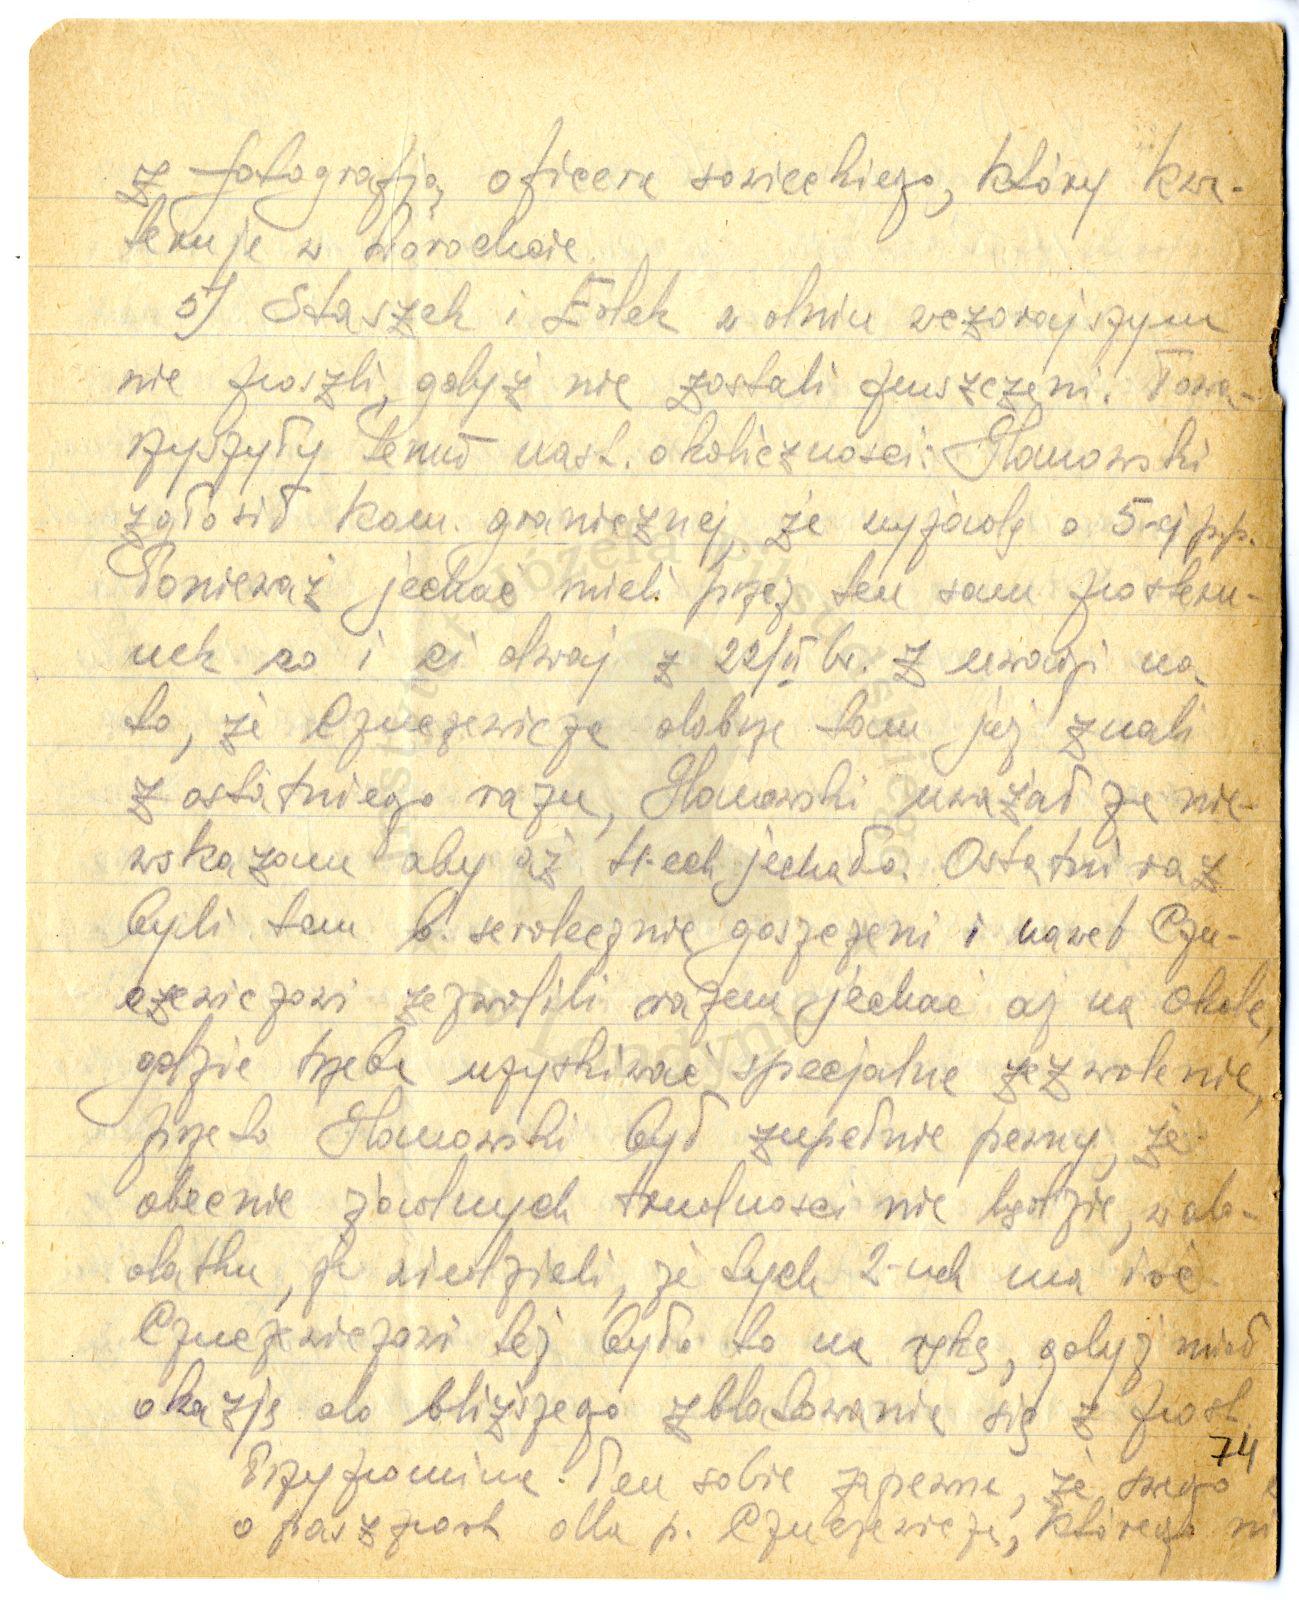 z fotografją oficera sowieckiego, który kwa-
teruje w Worochcie.
5/ Staszek i Felek w dniu wczorajszym
nie poszli, gdyż nie zostali puszczeni. Towa-
rzyszyły temu nast. okoliczności: Hanowski
zgłosił kom. granicznej, że wyjadą o 5-ej pp.
Ponieważ jechać mieli przez ten sam posteru-
nek co i ci dwaj z 22/II br. z uwagi na
to, że Czuczewicza dobrze tam już znali
z ostatniego razu, Hanowski uważał za nie-
wskazane aby aż 4-ech jechało. Ostatni raz
byli tam b. serdecznie goszczeni i nawet Czu-
czewiczowi zezwolili razem jechać aż na Okole,
gdzie trzeba uzyskiwać specjalne zezwolenie,
przeto Hanowski był zupełnie pewny, że
obecnie żadnych trudności nie będzie, w do-
datku, że wiedzieli, że tych 2-uch ma iść.
Czuczewiczowi też było to na rękę, gdyż miał
okazję do bliższego zblatowania się z post.
74
Przypomina Pan sobie zapewne, że swego
o paszport dla p. Czuczewicza, którego ni